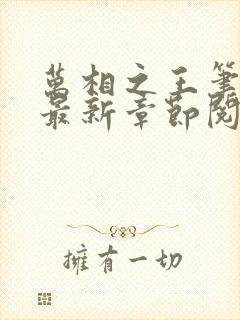 萬相之王筆
最新章節閱
擁有一切